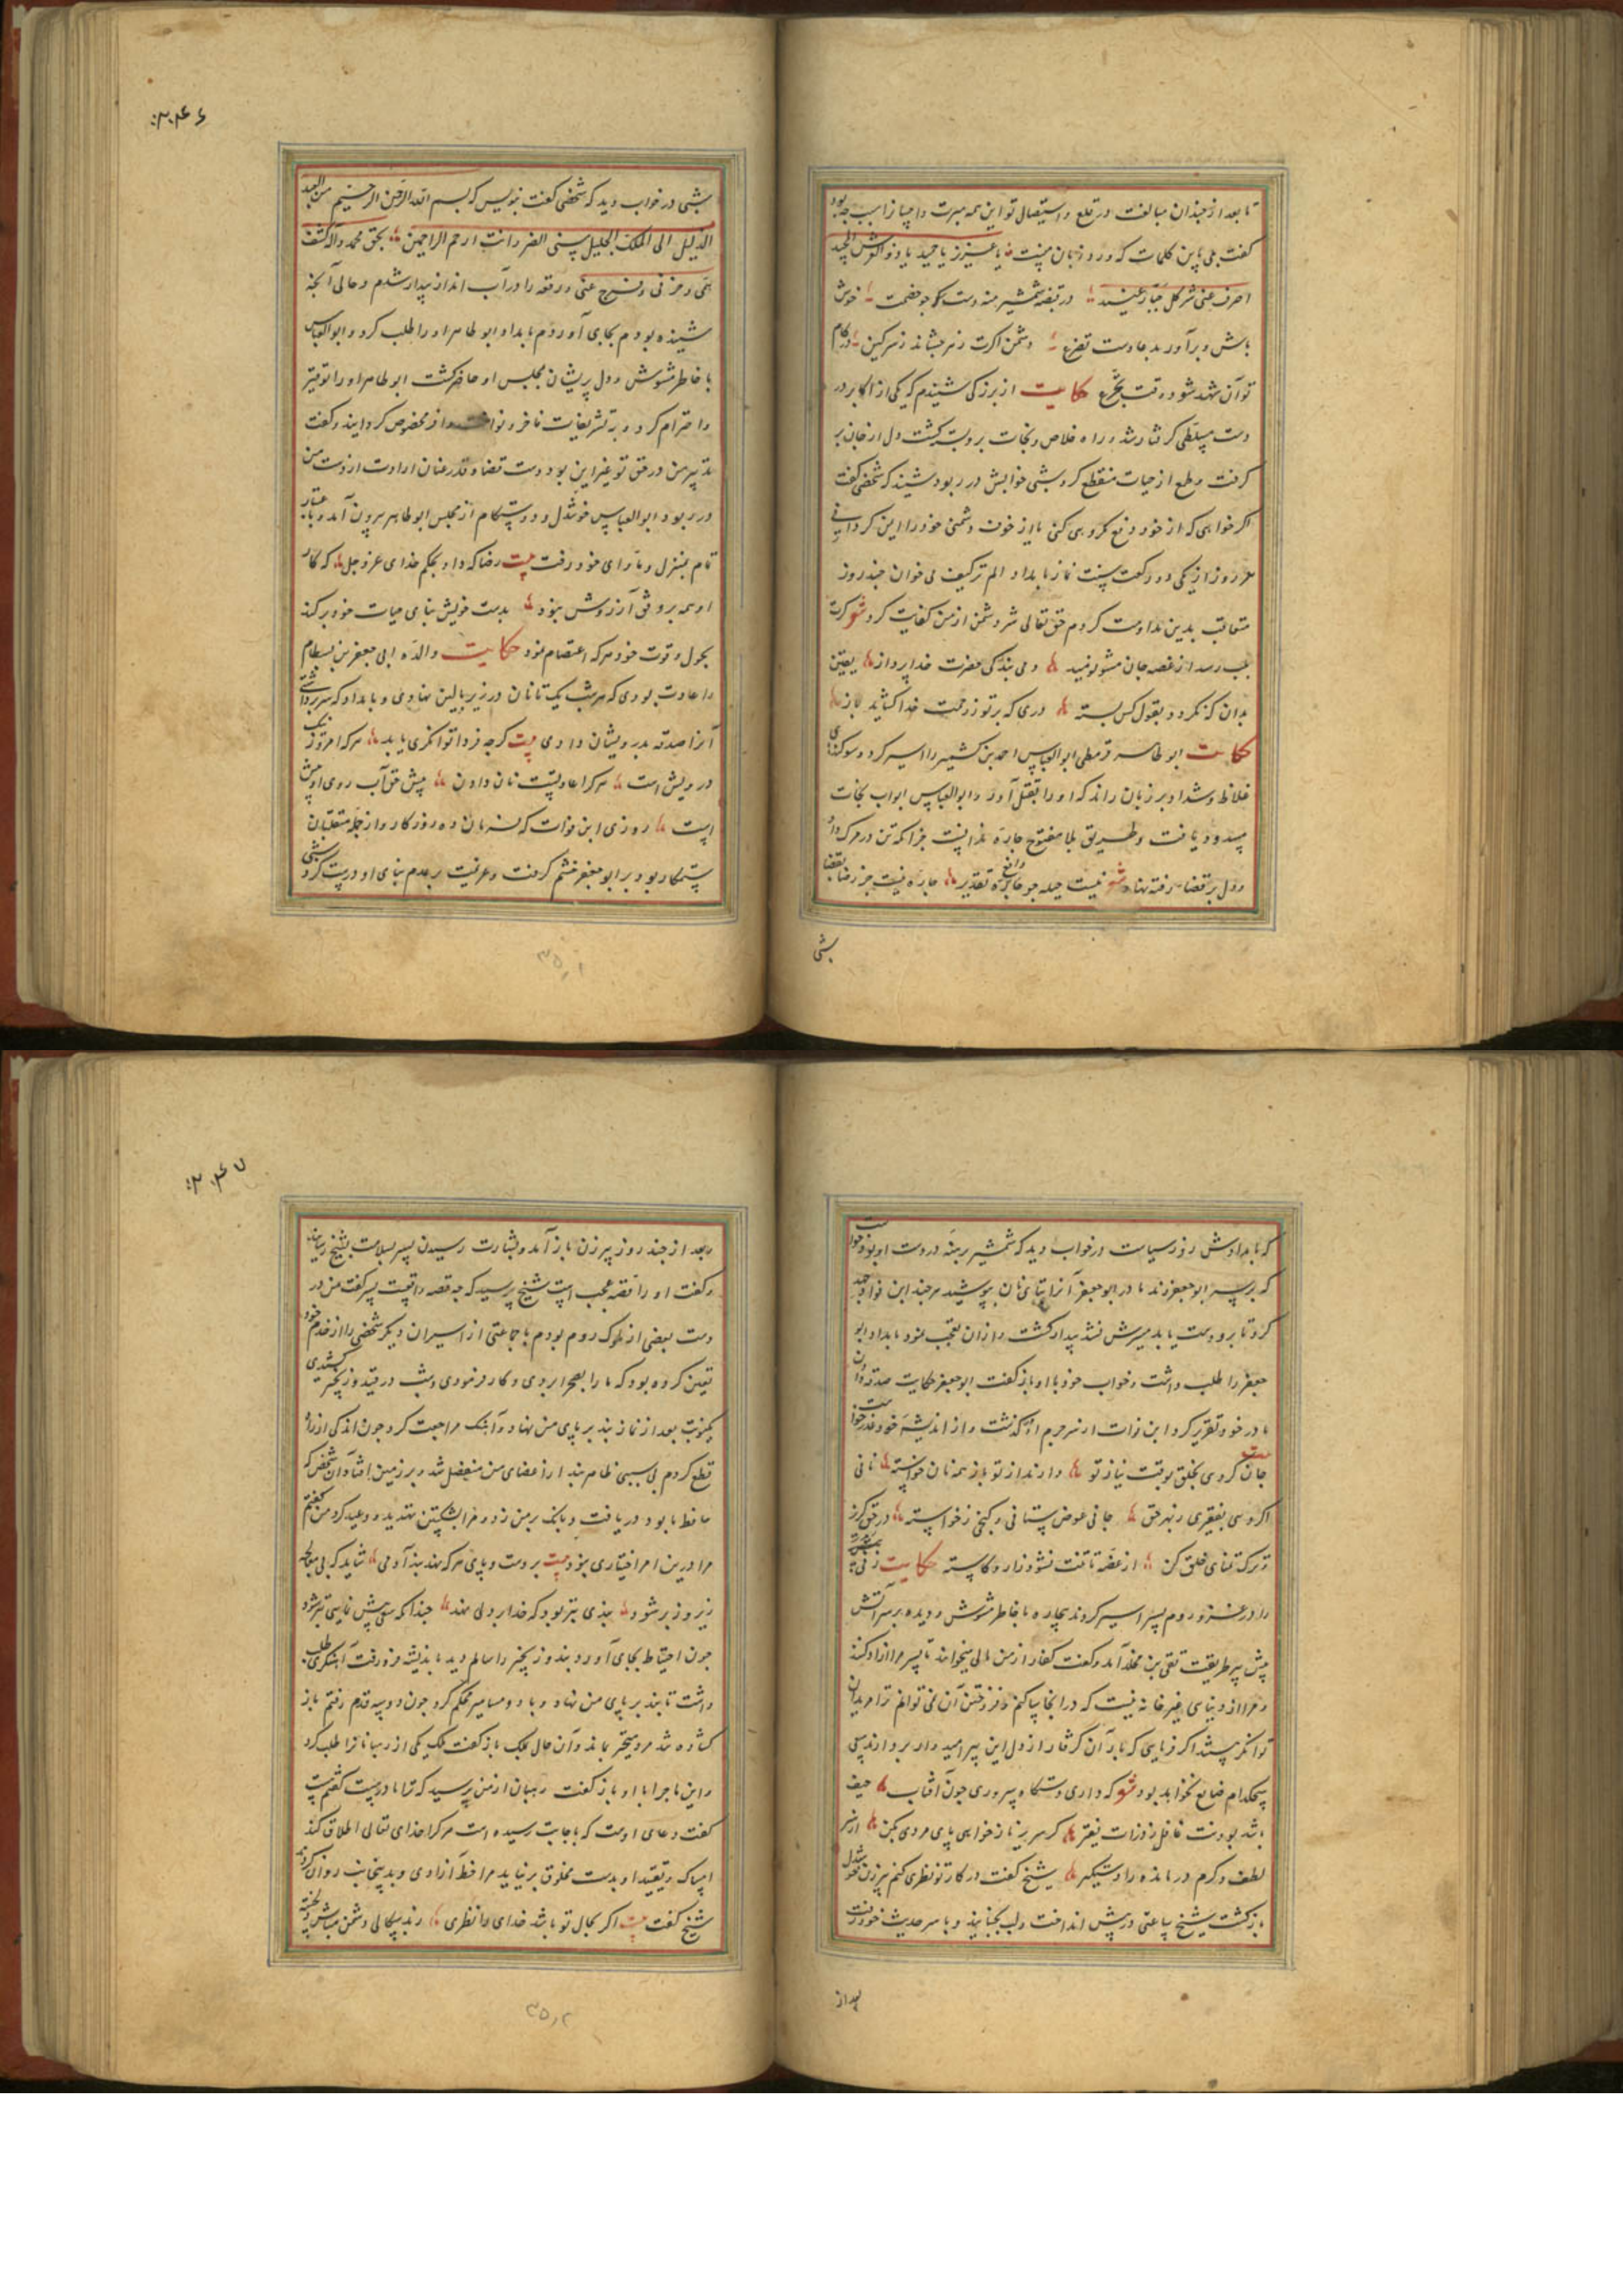 تا بعد از چندان مبالغت در قلع و استیصال تو این همه مبرت و احیا را سبب چه بود
گفت بلی باین کلمات که ورد زبان منست یا عزیز یا حمید یا ذوالعرش المجید
اصرف عنی شر کل جبار عنید در قبضه شمشیر منه دست خصمت خوش
باش و برآور بدعا دست تضرع دشمن اگرت زهر چشاند ز سر کین در کام
تو آن شهد شود وقت تجرع حکایت از بزرگی شنیدم که یکی از اکابر در
دست متسلطی گرفتار شد و راه خلاص و نجات بر وبسته گشت دل از جان بر
گرفت و طمع از حیات منقطع کرد شبی خوابش در ربود شنید که شخصی گفت
اگر خواهی که از خود دفع مکروهی کنی یا از خوف دشمنی خود را ایمن گردانی
هر روز از یکی دو رکعت سنت نماز بامداد الم ترکیف می خوان چند روز
متعاقب بدین مداومت کردم حق تعالی شر دشمن از من کفایت کرد شعر گرت
بلب رسد از غصه جان مشو نومید دمی ببندگی حضرت خدا پرداز یقین
بدان که نگردد بقول کس بسته دری که بر تو ز رحمت خدا گشاید باز
حکایت ابو طاهر قرمطی ابوالعباس احمد بن کشمیر را اسیر کرد و سوگندهای
غلاظ و شداد بر زبان راند که او را بقتل آورد و ابوالعباس ابواب نجات
مسدود یافت و طریق بلا مفتوح چاره ندانست جز آنکه تن در مرگ داد
و دل بر قضا رفته نهاد شعر نیست حیله چو تقدیر چاره نیست جز رضا بقضا
شبی
۳۰۴۶
شبی در خواب دید که شخصی گفت بنویس که بسم الله الرحمن الرحیم من العبد
الذلیل الی الملک الجلیل مسنی الضر و انت ارحم الراحمین بحق محمد و آله اکشف
همی و حزنی و فرج عنی و رقعه را در آب انداز بیدار شدم و حالی آنچه
شنیده بودم بجای آوردم بامداد ابو طاهر او را طلب کرد و ابوالعباس
با خاطر مشوش و دل پریشان بمجلس او حاضر گشت ابو طاهر او را توقیر
و احترام کرد و بتشریفات فاخر و نواخت وافر مخصوص گردانید و گفت
تدبیر من در حق تو غیر این بود دست قضا و قدر عنان ارادت از دست من
در ربود ابوالعباس خوشدل و دوستکام از مجلس ابو طاهر بیرون آمد و با
تمام بمنزل و ماوای خود رفت بیت رضا که داد بحکم خدای عز و جل که کار
او همه بر وفق آرزوش نبود بدست خویش بنای حیات خود برکند
بحول و قوت خود هر که اعتصام نمود حکایت والده ابی جعفر بن بسطام
را عادت بودی که هر شب یک تا نان در زیر بالین نهادی و بامداد که سر برداشتی
آنرا صدقه بدرویشان دادی بیت گرچه فردا توانگری یابد هر که امروز نیک
درویش است هر کرا عادتست نان دادن پیش حق آب روی او بیش
است روزی ابن فرات که فرمان ده روزگار و از جمله متقلبان
ستمکار بود بر ابو جعفر خشم گرفت و عزیمت بر هدم بنای او درست کرد شبی
۳۵۰۱
که بامدادش روز سیاست در خواب دید که شمشیر برهنه در دست او بود خواست
که بر سر ابو جعفر زند مادر ابو جعفر آنرا بتای نان بپوشید هر چند ابن فرات جهد
کرد تا برو دست یابد میسرش نشد بیدار گشت و از آن تعجب نمود بامداد ابو
جعفر را طلب داشت و خواب خود با او باز گفت ابو جعفر حکایت صدقه دادن
مادر خود تقریر کرد ابن فرات از سر جرم او گذشت و از اندیشه خود عذر خواست
بیت جان گر دهی بخلق بوقت نیاز تو دارند از تو باز همه نان خواسته نانی
اگر دهی بفقیری ز بهر حق جانی عوض ستانی و گنجی نخواسته در حق گریز
و ترک تمنای خلق کن از غصه تا تنت نشود زار و کاسته حکایت زنی
را در غزو روم پسر اسیر کردند بیچاره با خاطر مشوش و دیده بر سر آتش
پیش پیر طریقت تقی بن مخلد آمد و گفت کفار از من مالی میخواهند تا پسر مرا آزاد کنند
و مرا از دنیای غیر خانه نیست که در آنجا بباشم و فروختن آن نمی توانم ترا مریدان
توانگر هستند اگر فرمایی که بار آن گرفتار از دل این پیر امیدوار بردارند سعی
هیچکدام ضایع نخواهد بود شعر که داری دستگاه سروری چون آفتاب حیف
باشد بودنت غافل ز ذرات فقیر گر سریر ناز خواهی پای مردی بکن از سر
لطف و کرم درمانده را دستگیر شیخ گفت در کار تو نظری کنم پیرزن خوشدل
بازگشت شیخ ساعتی سر در پیش انداخت و لب بجنبانید و با سر حدیث خود رفت
بعد از
۳۰۴۷
و بعد از چند روز پیرزن باز آمد و بشارت رسیدن پسر بسلامت بشیخ رسانید
و گفت او را قصه عجب است شیخ پرسید که چه قصه داشت پسر گفت من در
دست بعضی از ملوک روم بودم با جماعتی از اسیران دیگر شخصی را از خدم خود
تعیین کرده بود که ما را بصحرا بردی و کار فرمودی و شب در قید و زنجیر کشیدی
یکنوبت بعد از نماز بند بر پای من نهاد و آهنگ مراجعت کرد چون اندکی از راه
قطع کردم بی سببی ظاهر بند از اعضای من منفصل شد و بر زمین افتاد آن شخص که
حافظ ما بود دریافت و بانگ بر من زد و مرا بشکستن تهدید و وعید کرد من گفتم
مرا درین امر اختیاری نبود بیت بر دست و پای هر که نهد بند آدمی شاید که بی معالجه
زیر و زبر شود بندی بتر بود که خدا بر دلی نهد چندانکه سعی پیش نمایی بتر شود
چون احتیاط بجای آورد و بند و زنجیر را سالم دید باندیشه فرو رفت آهنگری طلب
داشت تا بند بر پای من نهاد و با دو مسامیر محکم کرد چون دو سه قدم رفتم باز
گشاده شد مرد متحیر بماند و آن حال بملک باز گفت ملک یکی از رهبانان را طلب کرد
و این ماجرا با او باز گفت رهبان از من پرسید که ترا مادر هست گفتم هست
گفت دعای اوست که باجابت رسیده است هر کرا خدای تعالی اطلاق کند
امساک و تقیید او بدست مخلوق بر نیاید مرا خط آزادی و بدینجانب روان کردند
شیخ گفت بیت اگر بحال تو باشد خدای را نظری رند سگالی دشمن مباش دلخسته
۳۵۰۲